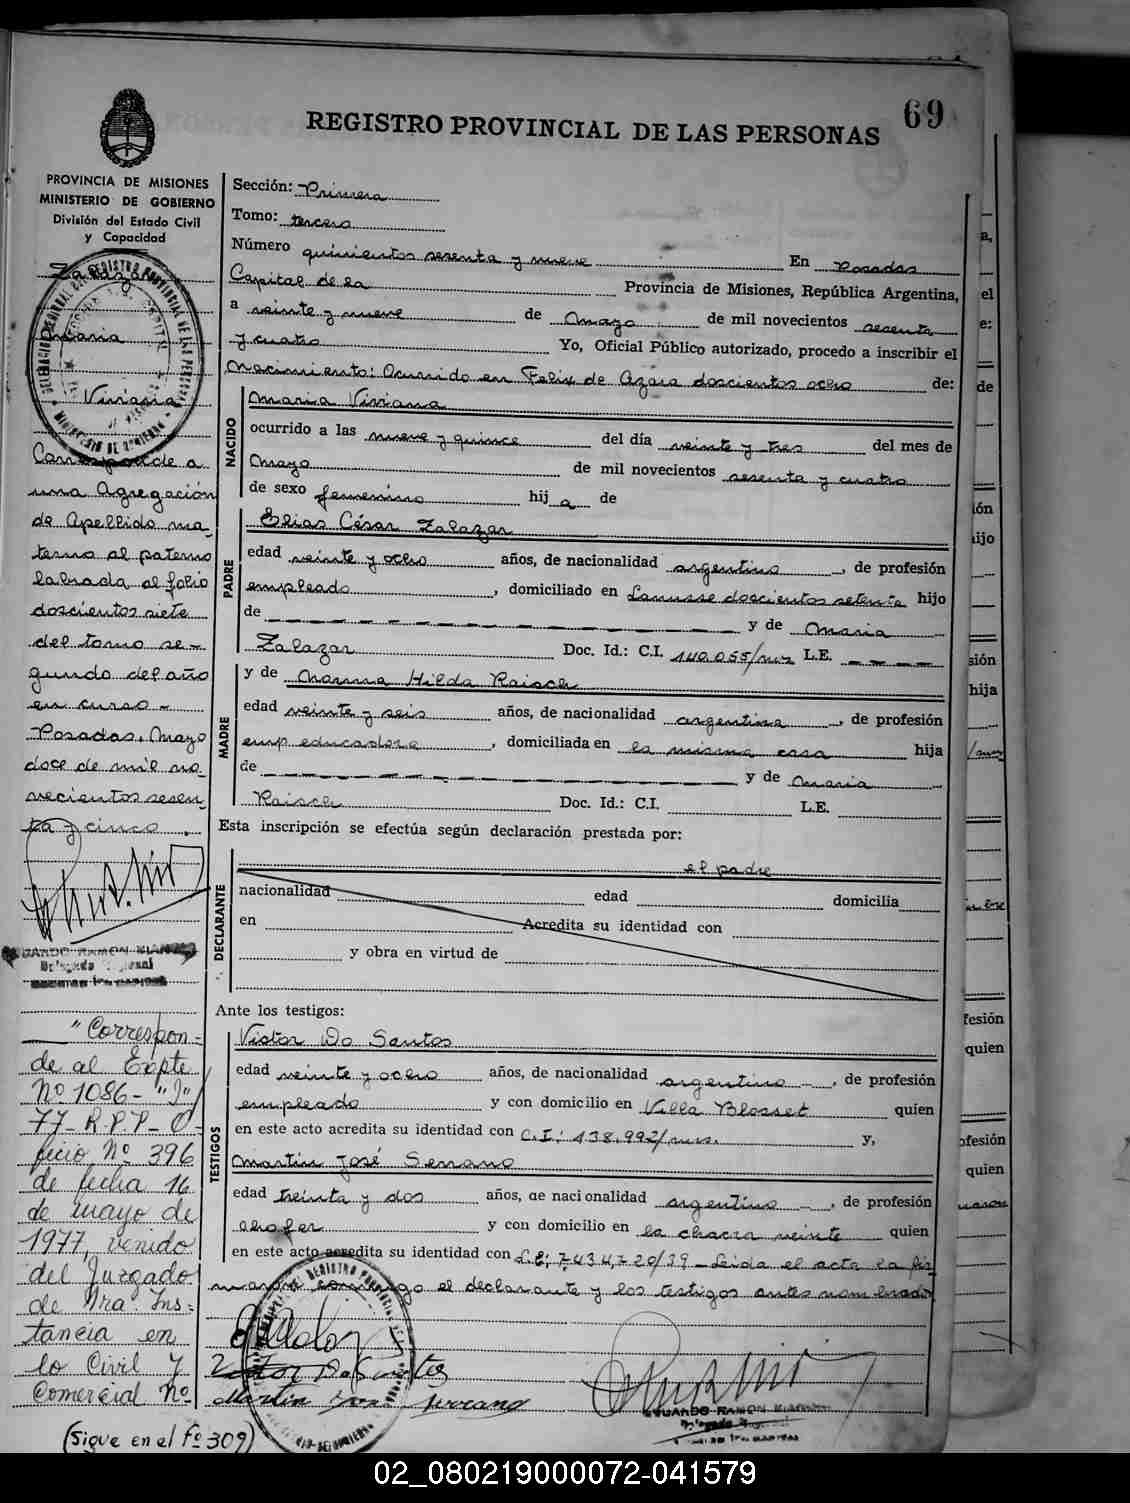 69
REGISTRO PROVINCIAL DE LAS PERSONAS
PROVINCIA DE MISIONES
MINISTERIO DE GOBIERNO
División del Estado Civil
y Capacidad
Zalazar
Maria
Viviana
Corresponde a
una Agregación
de Apellido ma-
terno al paterno
labrada al folio
doscientos siete
del tomo se-
gundo del año
en curso -
Posadas, Mayo
doce de mil no-
vecientos sesen-
ta y cinco.
EDUARDO RAMON
"Correspon-
de al Expte
Nº 1086- "J"
77- R.P.P- O-
ficio Nº 396
de fecha 16
de mayo de
1977, venido
del Juzgado
de 1ra. Ins-
tancia en
lo Civil y
Comercial Nº
(sigue en el Fº 309)
Sección: Primera
Tomo: tercero
Número quinientos sesenta y nueve En Posadas
Capital de la Provincia de Misiones, República Argentina,
a veinte y nueve de Mayo de mil novecientos sesenta
y cuatro Yo, Oficial Público autorizado, procedo a inscribir el
Nacimiento: Ocurrido en Felix de Azara doscientos ocho de:
NACIDO
Maria Viviana
ocurrido a las nueve y quince del día veinte y tres del mes de
Mayo de mil novecientos sesenta y cuatro
de sexo femenino hij a de
PADRE
Elias César Zalazar
edad veinte y ocho años, de nacionalidad argentino, de profesión
empleado, domiciliado en Lanusse doscientos setenta hijo
de y de Maria
Zalazar Doc. Id.: C.I. 140.055/mis L.E.
MADRE
y de Norma Hilda Raisch
edad veinte y seis años, de nacionalidad argentina, de profesión
emp. educadora, domiciliada en la misma casa hija
de y de Maria
Raisch Doc. Id.: C.I. L.E.
Esta inscripción se efectúa según declaración prestada por:
DECLARANTE
el padre
nacionalidad edad domicilia
en Acredita su identidad con
y obra en virtud de
Ante los testigos:
TESTIGOS
Victor Do Santos
edad veinte y ocho años, de nacionalidad argentino, de profesión
empleado y con domicilio en Villa Blosset quien
en este acto acredita su identidad con C.I: 138.992/mis. y,
Martin José Serrano
edad treinta y dos años, de nacionalidad argentino, de profesión
chofer y con domicilio en la chacra veinte quien
en este acto acredita su identidad con L.E: 7.434.720/39 - Leida el acta la fir-
maron conmigo el declarante y los testigos antes nombrados
Victor Do Santos
Martin José Serrano
EDUARDO RAMON
02_080219000072-041579